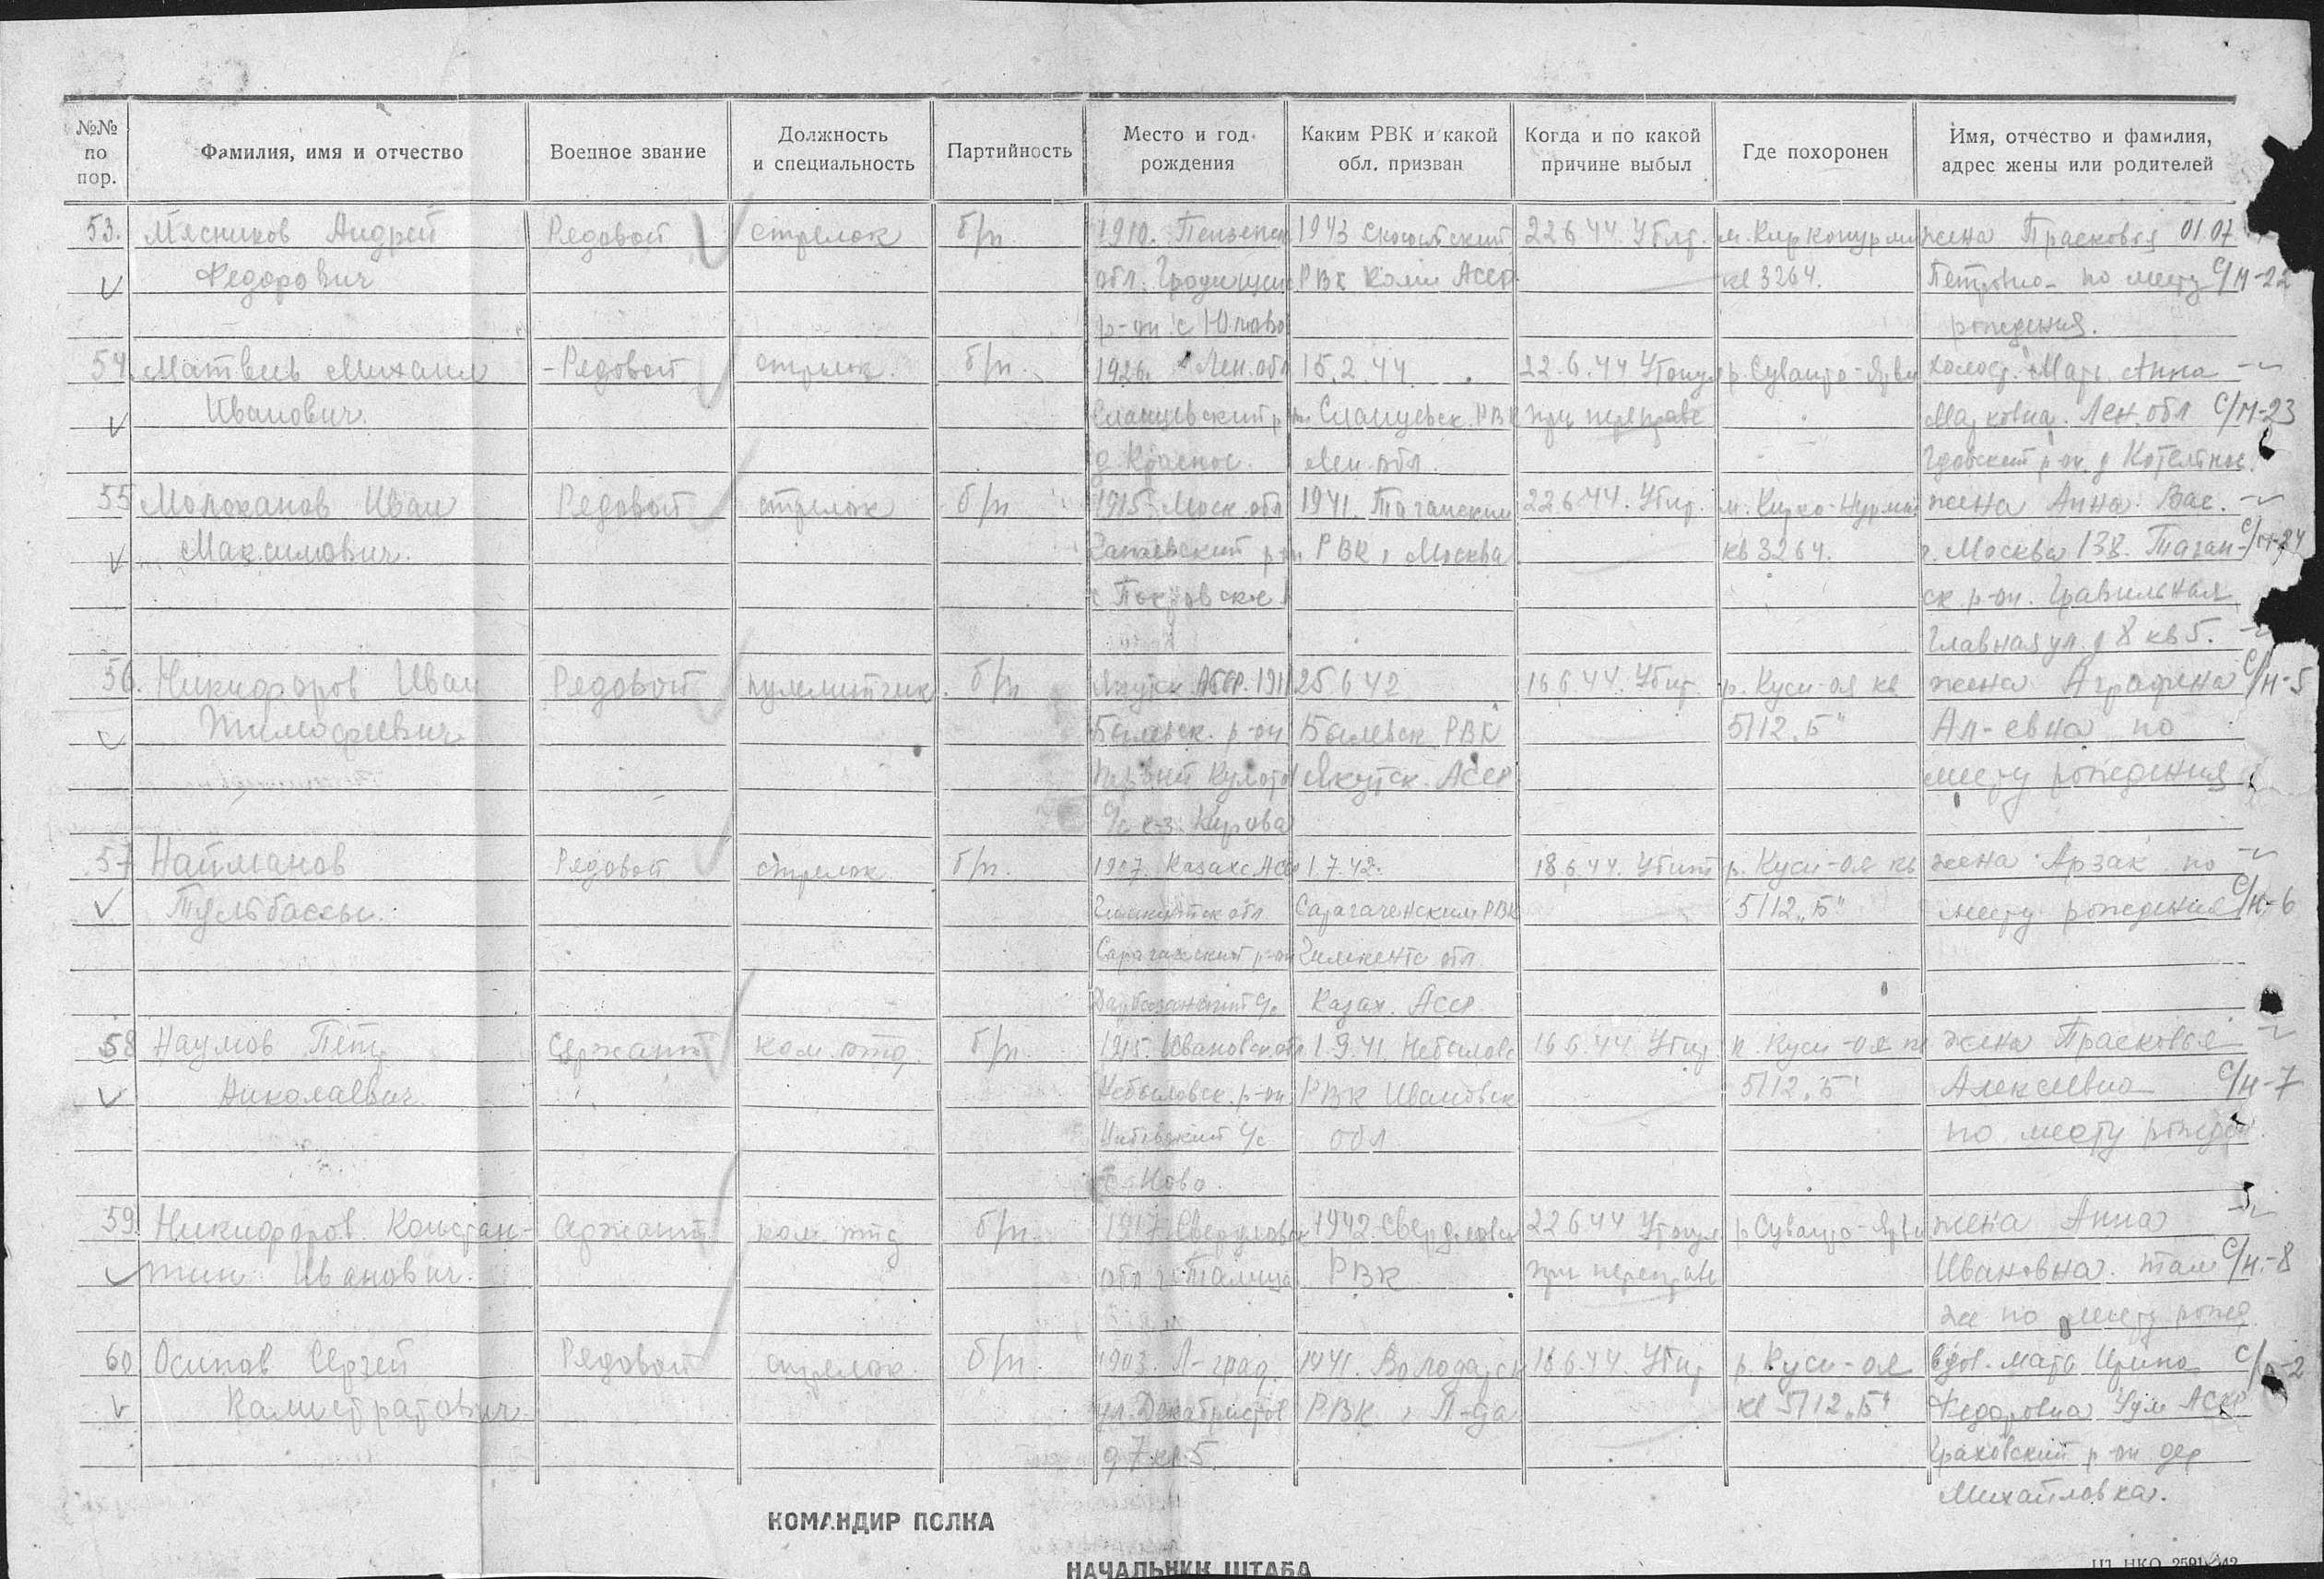 №№ по пор.
Фамилия, имя и отчество
Военное звание
Должность и специальность
Партийность
Место и год рождения
Каким РВК и какой обл. призван
Когда и по какой причине выбыл
Где похоронен
Имя, отчество и фамилия, адрес жены или родителей
53. Мясников Андрей Редовой стрелок б/п 1910. Пензенск 1943 22 6 44 Убит. жена Прасковья 01.07
Федорович обл. РВК Коми Асср кв 3264. Петровна по месту С/М-22
р-он с рождения.
54. Матвеев Михаил Редовой стрелок б/п. 1926. Лен. обл 15.2.44 22.6.44 Утонул р. Суванто-Ярви холост. Мать Анна
Иванович. Сланцевский р-он Сланцевск. РВК при переправе Марковна. Лен. обл С/М-23
д. Красное. Лен. обл. Гдовский р-он. д
55 Молоканов Иван Редовой стрелок б/п 1915 Моск. обл 1941. Таганским 22 6 44. Убит. м. Кирко-Нурми жена Анна Вас.
Максимович. р-он. РВК г. Москва кв 3264. г. Москва 138. Таган-
с Покровское ск. р-он.
Главная ул. д 8 кв 5.
56. Никифоров Иван Редовой пулеметчик б/п Якутск АССР. 1911 25 6 42 16 6 44. Убит. р. Куси-оя кв жена Аграфена С/Н-5
Тимофеевич р-он РВК 5112 „Б" Ал-евна по
Якутск. Асср месту рождения
с/с к-з. Кирова
57 Найманов Редовой стрелок б/п. 1907. Казахс Асср 1.7.42. 18.6.44. Убит р. Куси-оя кв жена Арзак по
Тульбассы. обл Сарагаченским РВК 5112 „Б" месту рождения С/Н-6
р-он Чимкентс обл
с/с Казах. Асср
58 Наумов Петр Сержант ком. отд. б/п. 1915. Ивановск. обл 1.9.41. Небыловс 16 6.44 Убит р. Куси-оя кв жена Прасковья
Николаевич. Небыловск. р-он РВК Ивановск 5112 „Б" Алексеевна С/Н-7
с/с обл по месту рожден.
59. Никифоров Констан- Сержант ком. отд б/п. 1917 Свердловск 1942. Свердловск 22 6 44 Утонул р Суванто-Ярви жена Анна
тин Иванович. обл г. Талица РВК при переправе Ивановна. там С/Н-8
же по месту рожд.
60 Осипов Сергей Редовой стрелок. б/п. 1903. Л-град. 1941. Володарск 16 6.44. Убит р. Куси-оя вдов. мать Ирина
Калистратович ул. Декабристов РВК г. Л-да кв 5112 „Б" Федоровна Удм АССР
д 7 кв 5. Граховский р-он дер
Михайловка.
КОМАНДИР ПОЛКА
НАЧАЛЬНИК ШТАБА